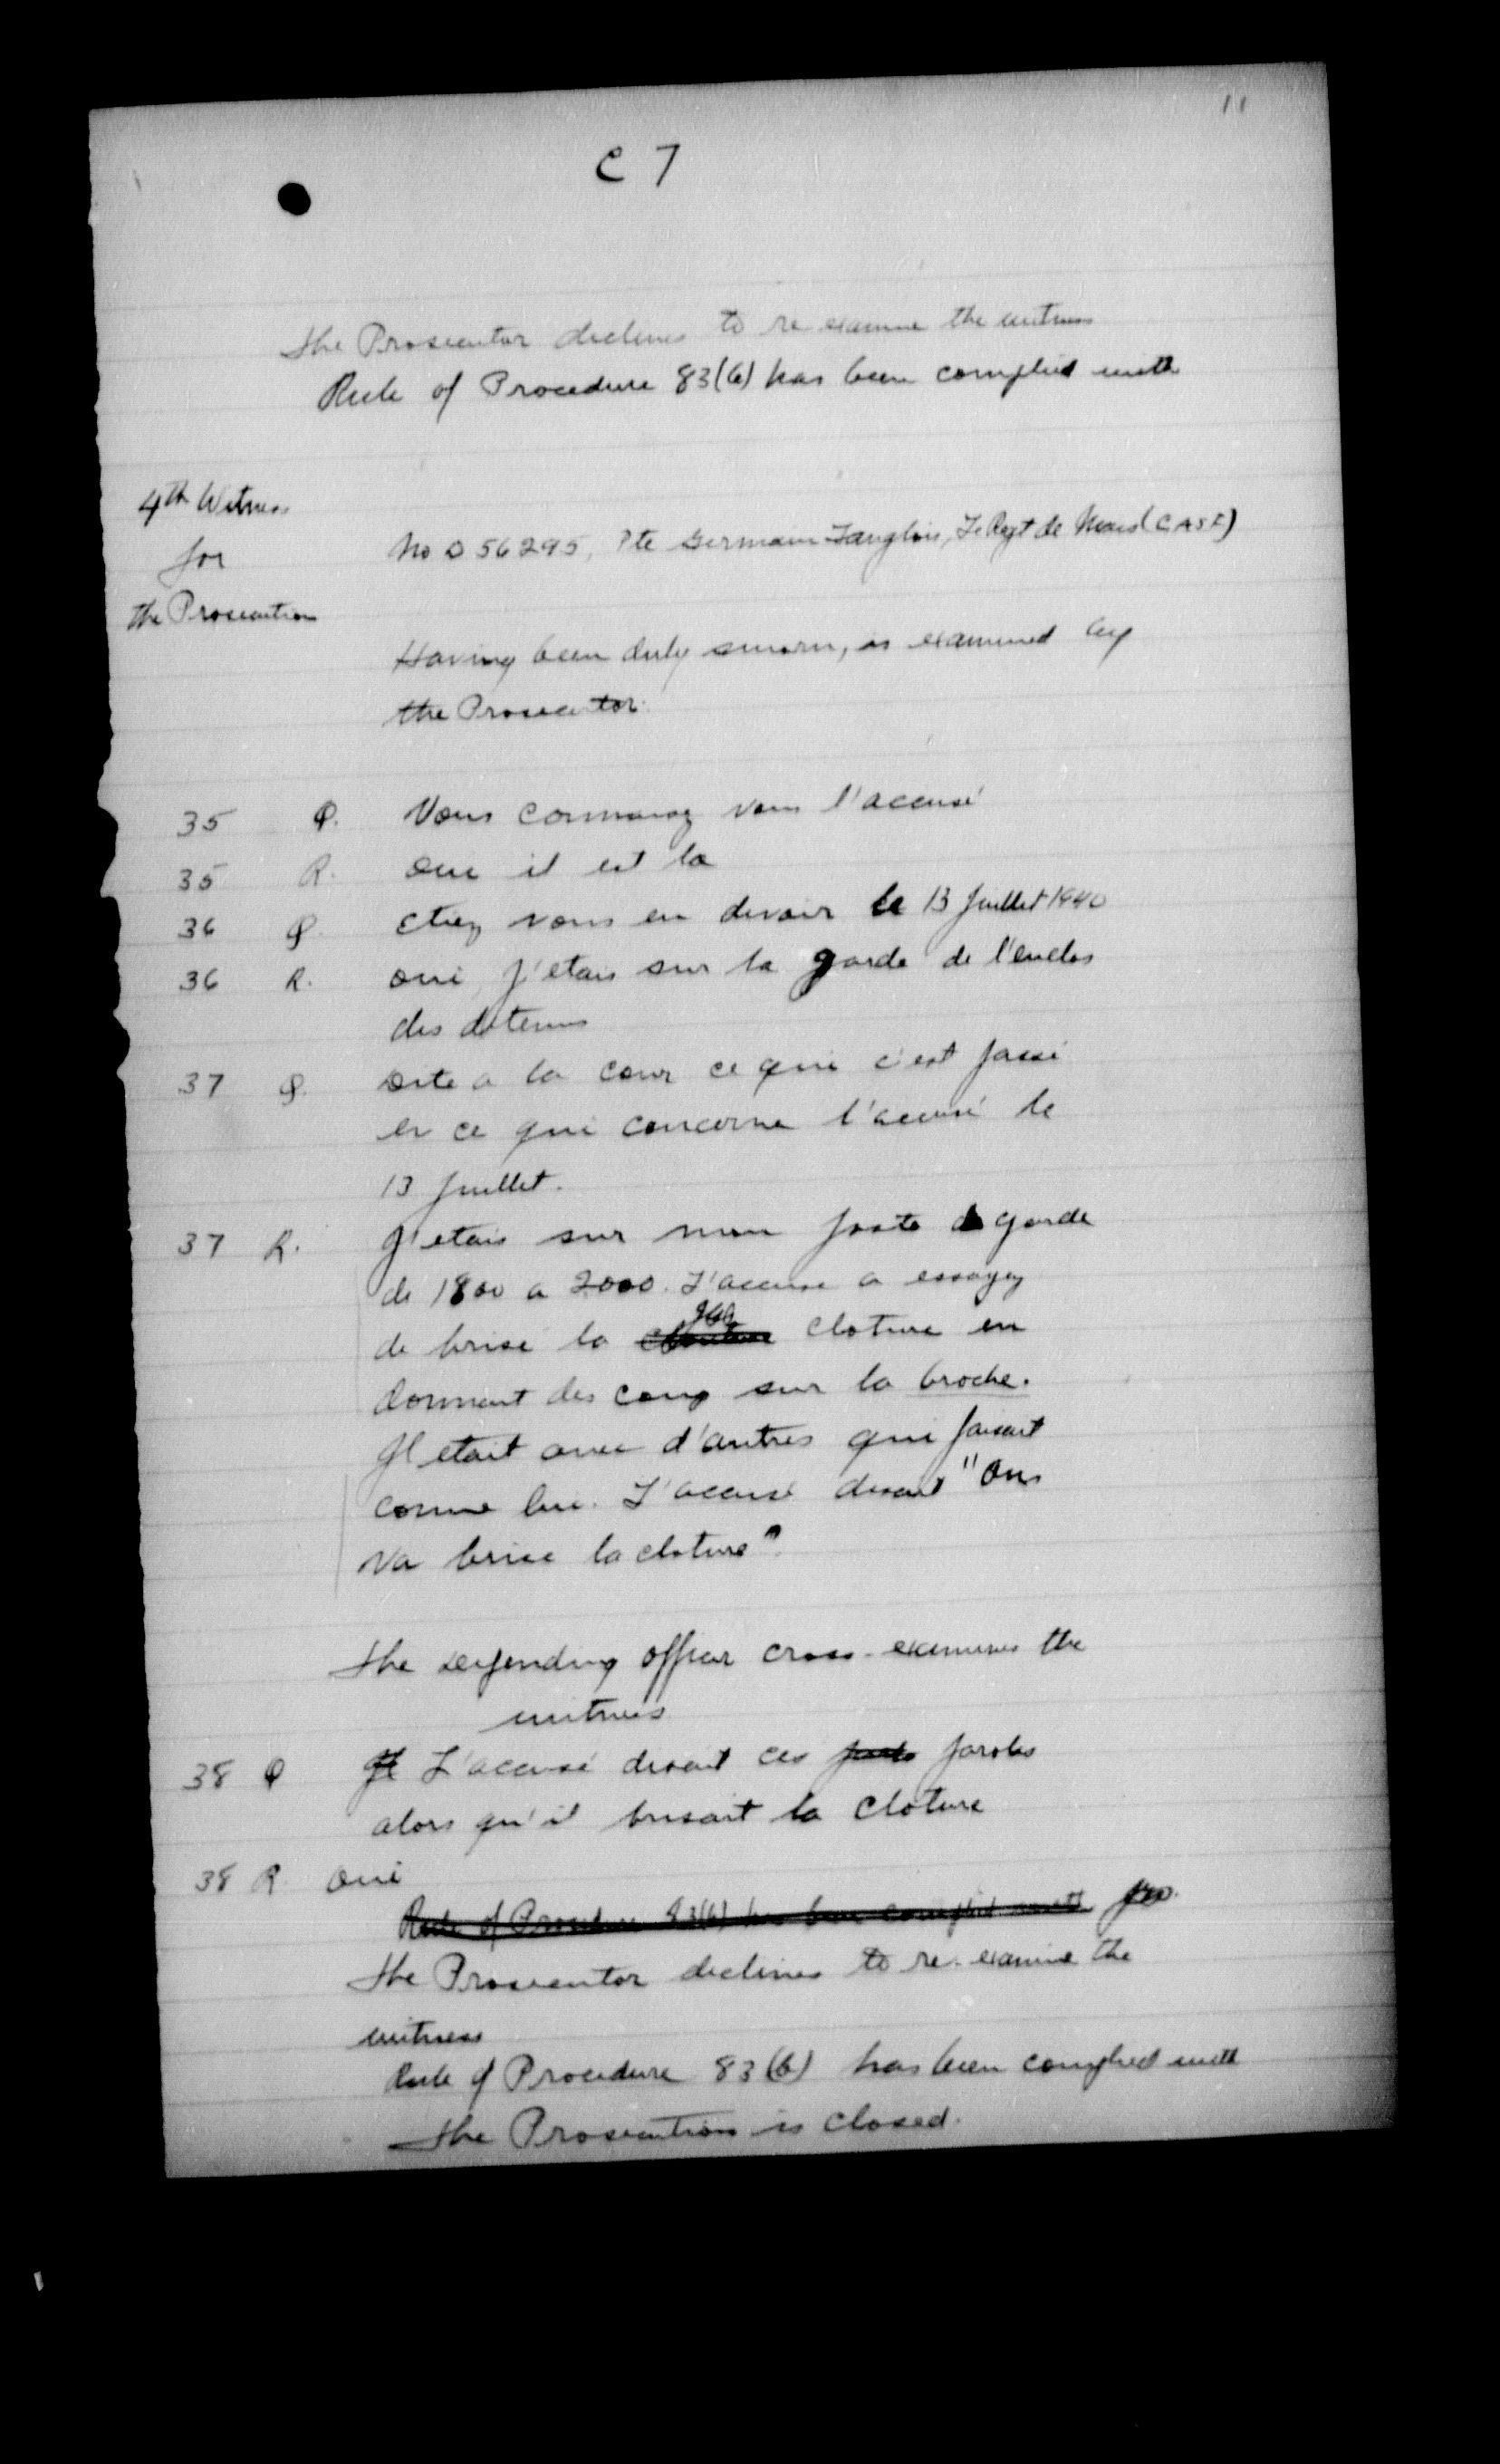 11
C 7
The Prosecutor declines to re examine the witness
Rule of Procedure 83(b) has been complied with
4th Witness
for
the Prosecution
No D 56295, Pte Germain Langlois, Le Regt de Mais (CASF)
Having been duly sworn, is examined by
the Prosecutor.
35 Q. Vous connaisez vous l'accusé
35 R. Oui il est la
36 Q. Etiez vous en devoir le 13 Juillet 1940
36 R. Oui, j'etais sur la garde de l'enclos
des detenus
37 Q. Dite a la cour ce qui c'est passé
en ce qui concerne l'accusé le
13 Juillet.
37 R. J'etais sur mon poste de garde
de 1800 a 2000. L'accuse a essayez
de brise la cloture en
donnant des coup sur la broche.
Il etait avec d'autres qui faisait
comme lui. L'accusé disait "On
va brise la cloture".
The Defending Officer cross-examines the
witness
38 Q Il L'accusé disait ces paroles
alors qu'il brisait la cloture
38 R Oui
Rule of Procedure 83(b) has been complied with
The Prosecutor declines to re-examine the
witness
Rule of Procedure 83(b) has been complied with
The Prosecution is closed.